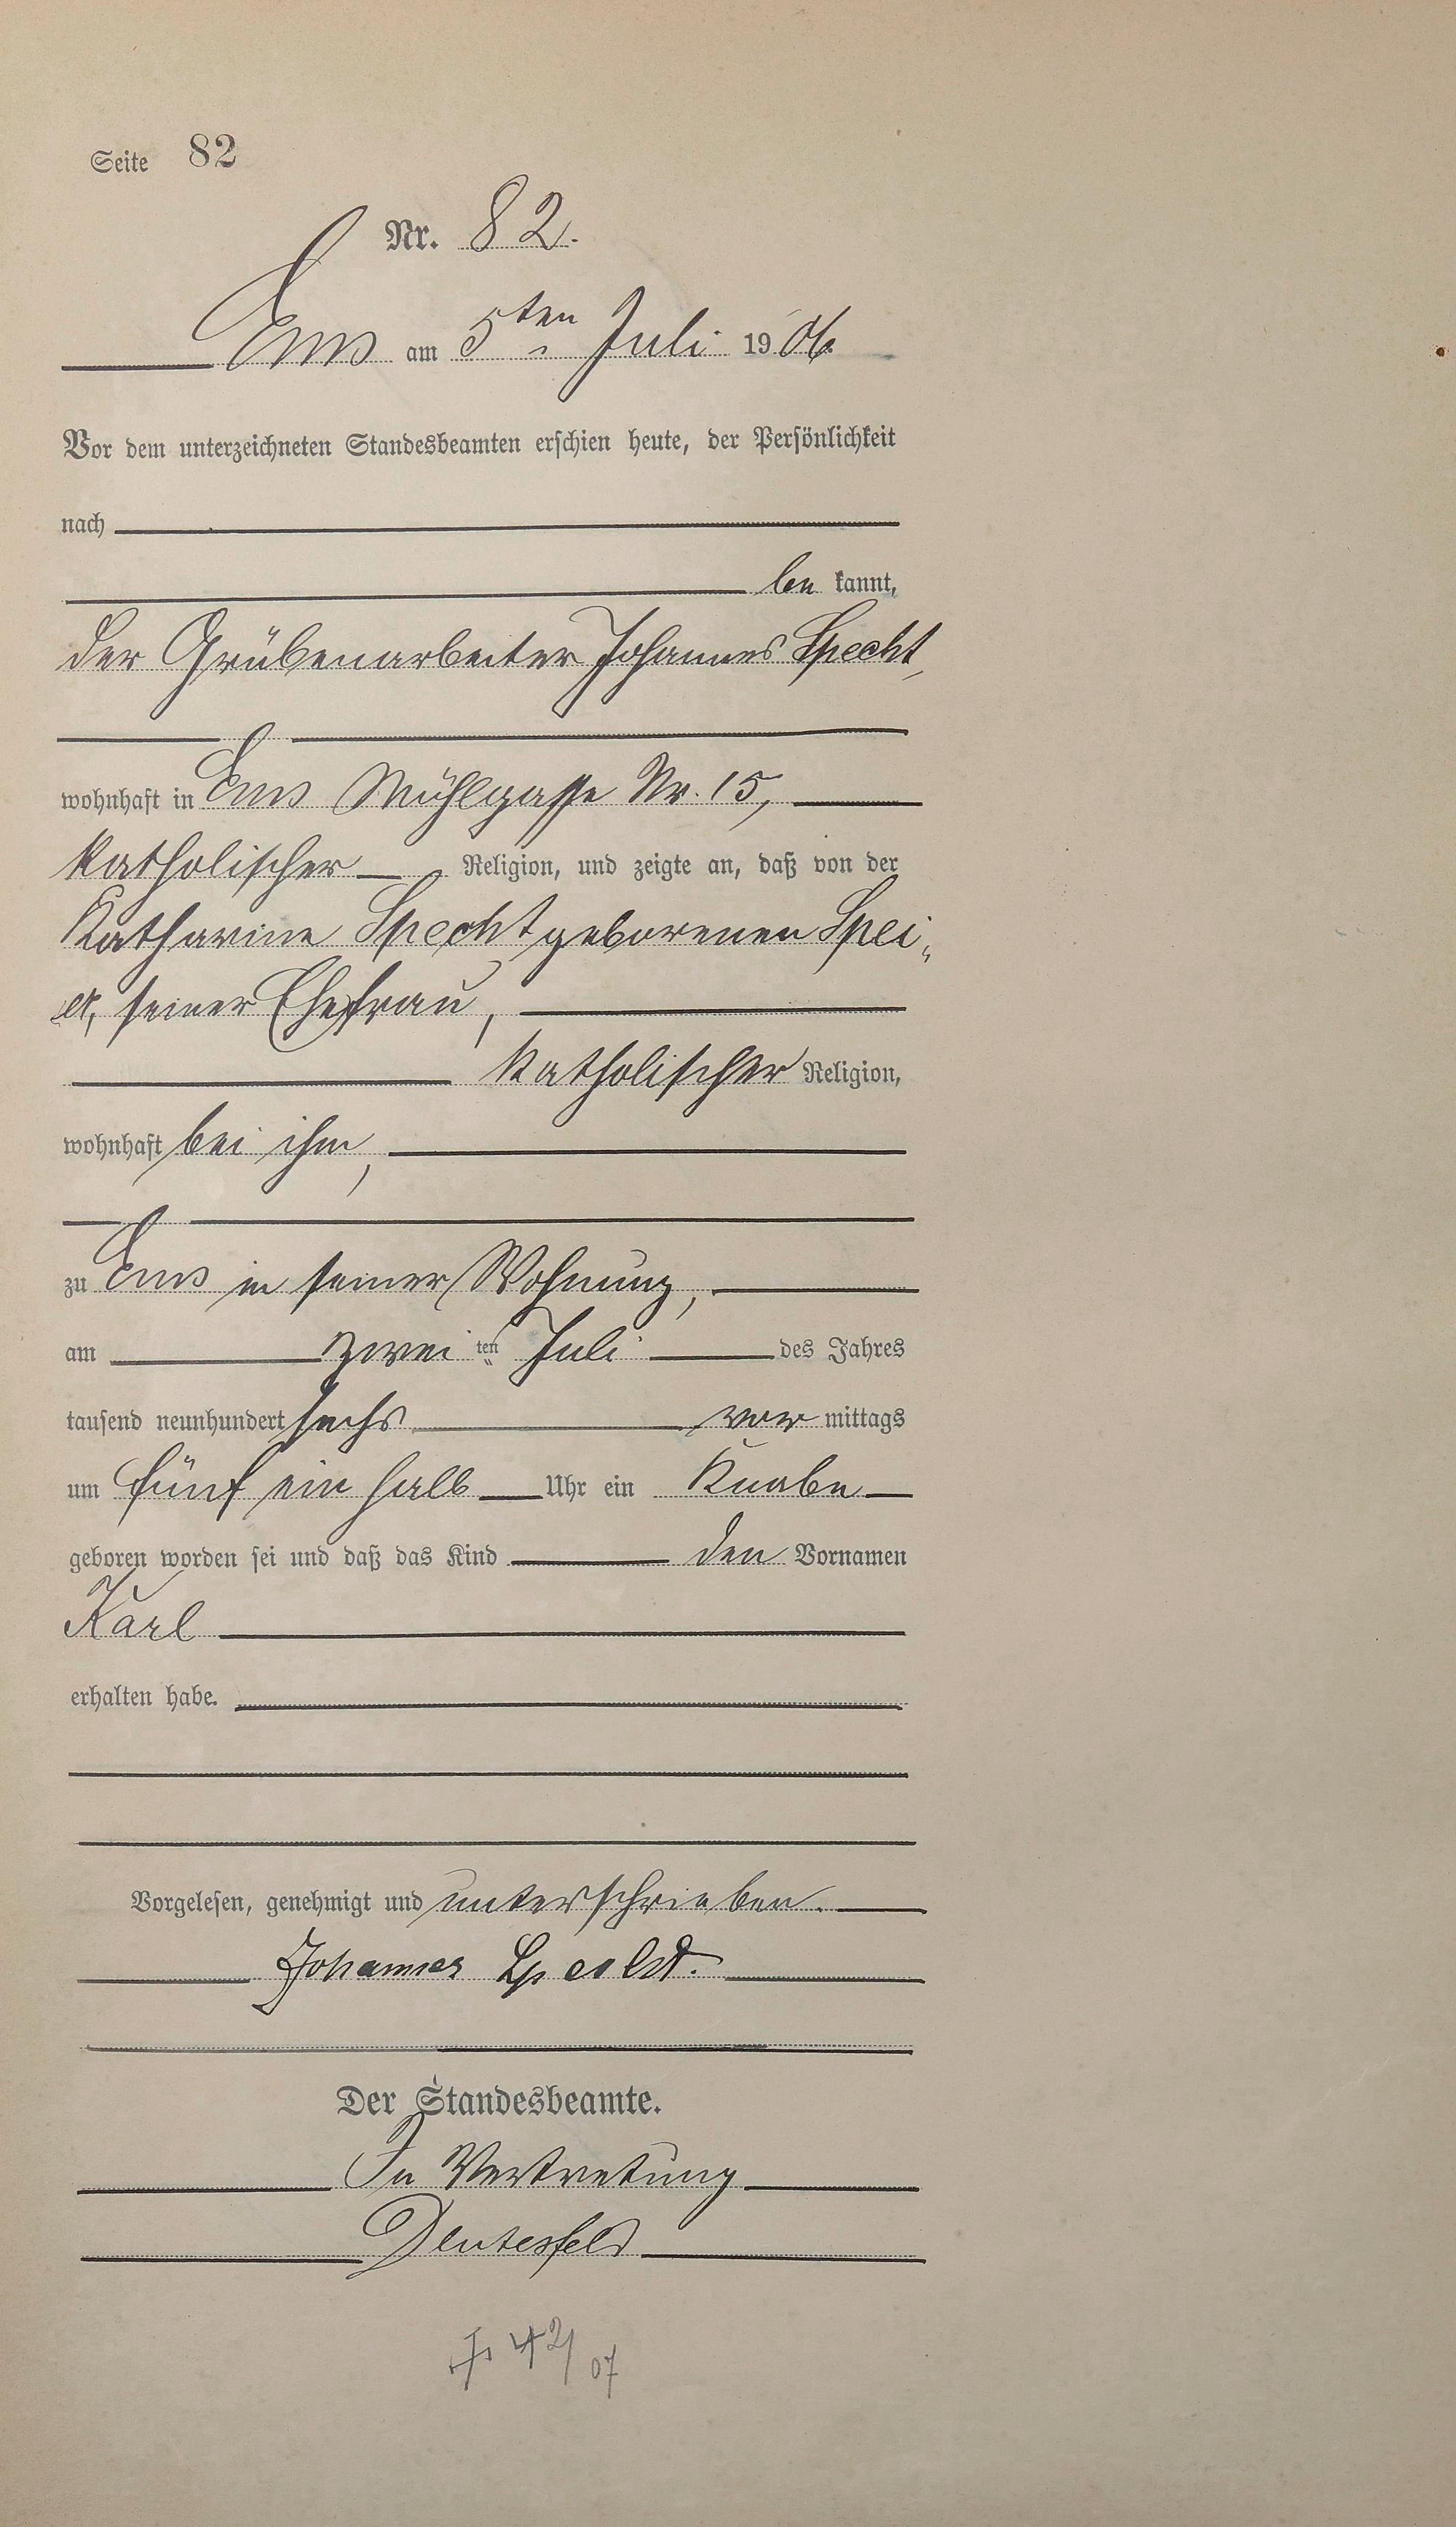 Seite 82
Nr. 82.
Ems am 5ten Juli 1906.
Vor dem unterzeichneten Standesbeamten erschien heute, der Persönlichkeit
nach
be kannt,
der Grubenarbeiter Johannes Specht,
wohnhaft in Ems Mühlgasse Nr. 15,
katholischer Religion, und zeigte an, daß von der
Katharine Specht geborenen Spei„
er, seiner Ehefrau,
katholischer Religion,
wohnhaft bei ihm,
zu Ems in seiner Wohnung,
am zwei ten Juli des Jahres
tausend neunhundert sechs vor mittags
um fünf ein halb Uhr ein Knabe
geboren worden sei und daß das Kind den Vornamen
Karl
erhalten habe.
Vorgelesen, genehmigt und unterschrieben.
Johannes Specht.
Der Standesbeamte.
In Vertretung
† 42/07